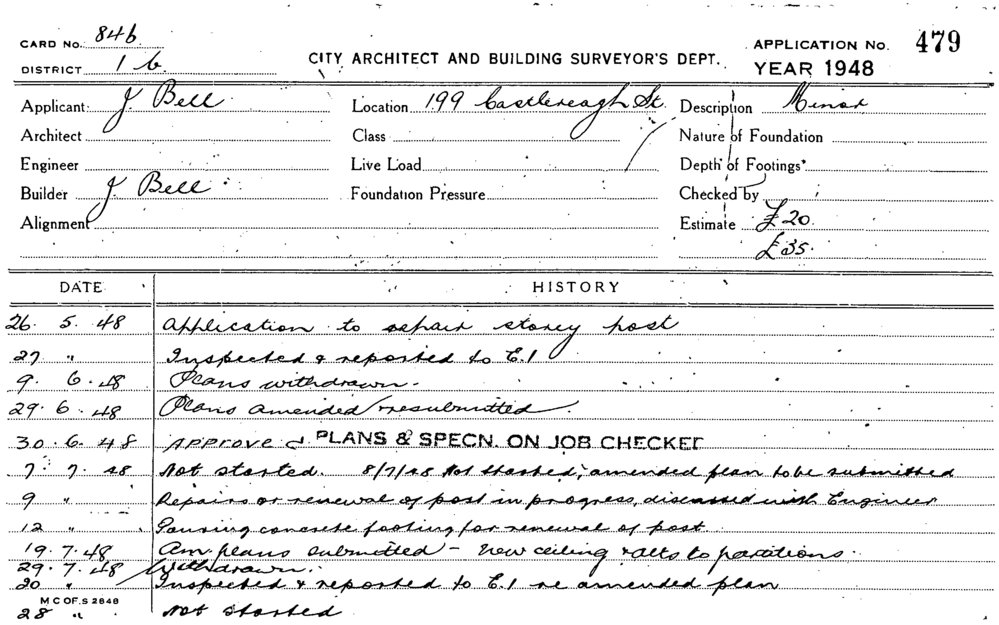 CARD No. 846
DISTRICT 1 b.
CITY ARCHITECT AND BUILDING SURVEYOR'S DEPT.
APPLICATION No. 479
YEAR 1948
Applicant J Bell Location 199 Castlereagh St. Description Minor
Architect Class Nature of Foundation
Engineer Live Load Depth of Footings
Builder J Bell Foundation Pressure Checked by
Alignment Estimate £20.
£35.
DATE HISTORY
26. 5. 48 Application to repair storey post
27 " Inspected & reported to E.1
9. 6. 48 Plans withdrawn.
29. 6. 48 Plans amended resubmitted.
30. 6. 48 Approved PLANS & SPECN. ON JOB CHECKED
7. 7. 48 Not started. 8/7/48 Not started, amended plan to be submitted
9 " Repairs or renewal of post in progress, discussed with Engineer
12 " Pouring concrete footing for renewal of post
19. 7. 48 Am. plans submitted - New ceiling & alts to partitions.
29. 7. 48 Withdrawn.
20 " Inspected & reported to E.1 re amended plan
M C OF. S 2648
28 " Not started